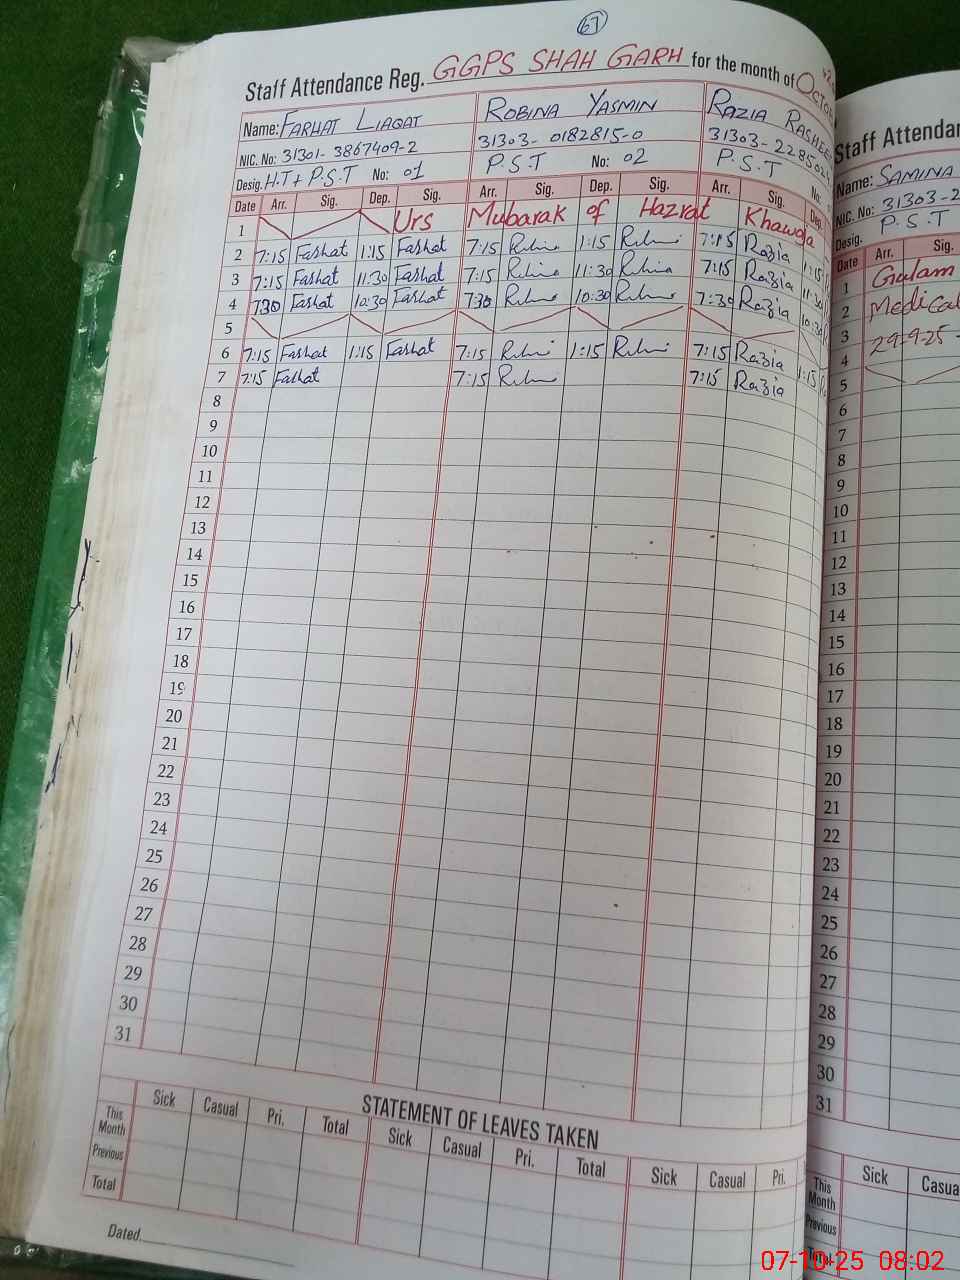 67
Staff Attendance Reg. GGPS SHAH GARH for the month of October
Name: FARHAT LIAQAT ROBINA YASMIN RAZIA RASHEE
NIC. No: 31301-3867409-2 31303-0182815-0 31303-228502
Desig. H.T + P.S.T No: 01 P.S.T No: 02 P.S.T No:
Date Arr. Sig. Dep. Sig. Arr. Sig. Dep. Sig. Arr. Sig. Dep.
1 Urs Mubarak of Hazrat Khawaja
2 7:15 Farhat 1:15 Farhat 7:15 1:15 7:15 Razia 1:15
3 7:15 Farhat 11:30 Farhat 7:15 11:30 7:15 Razia 11:30
4 7:30 Farhat 10:30 Farhat 7:30 10:30 7:30 Razia 10:30
5
6 7:15 Farhat 1:15 Farhat 7:15 1:15 7:15 Razia 1:15
7 7:15 Farhat 7:15 7:15 Razia
8
9
10
11
12
13
14
15
16
17
18
19
20
21
22
23
24
25
26
27
28
29
30
31
STATEMENT OF LEAVES TAKEN
Sick Casual Pri. Total Sick Casual Pri. Total Sick Casual Pri.
This Month
Previous
Total
Dated.
Staff Attendan
Name: SAMINA
NIC. No: 31303-2
Desig. P.S.T
Date Arr. Sig.
1 Gulam
2 Medical
3 29-9-25 -
4
5
6
7
8
9
10
11
12
13
14
15
16
17
18
19
20
21
22
23
24
25
26
27
28
29
30
31
Sick Casua
This Month
Previous
Total
07-10-25 08:02